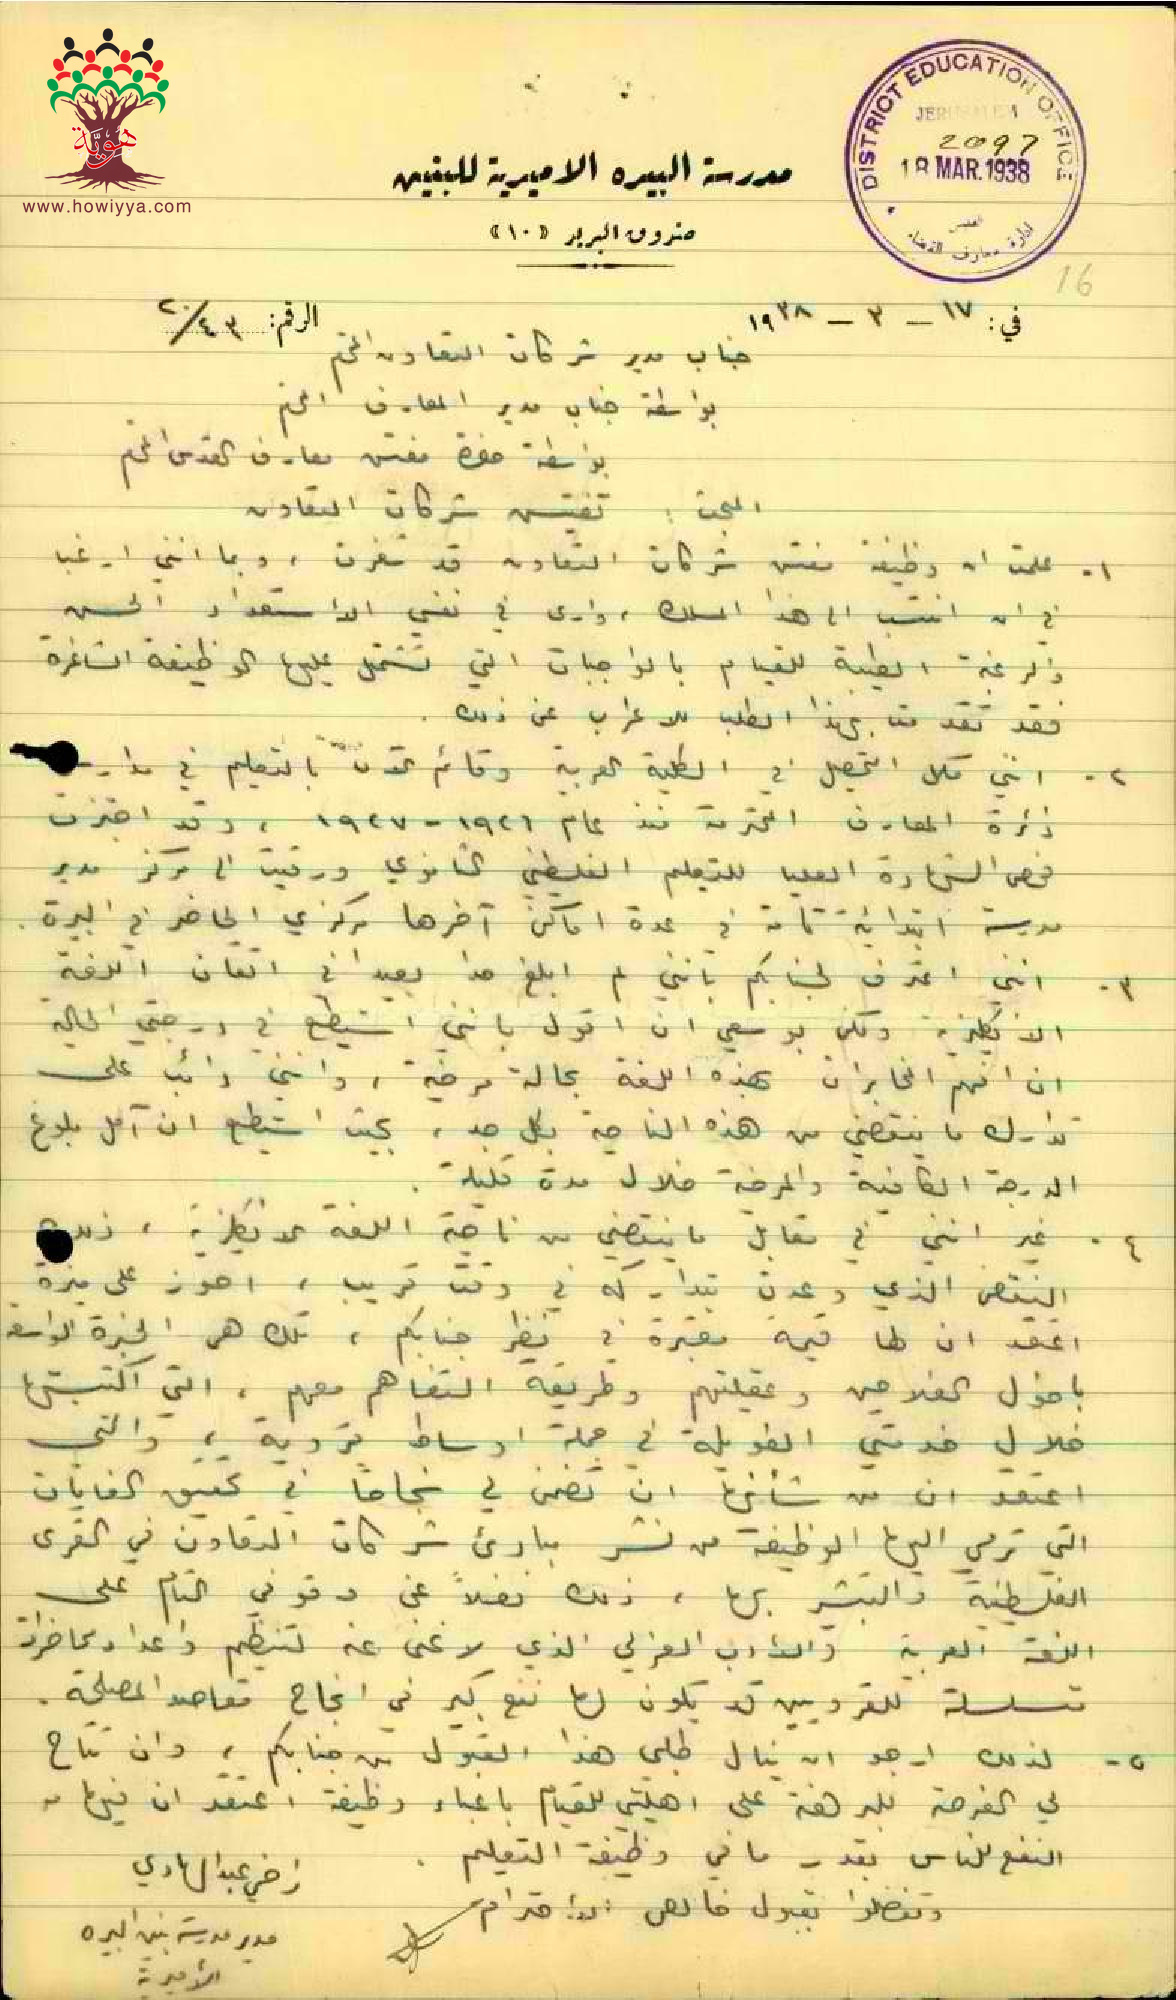 هوية
www.howiyya.com
DISTRICT EDUCATION OFFICE
JERUSALEM
2097
18 MAR. 1938
ادارة معارف القضاء
القدس
16
مدرسة البيره الاميرية للبنين
صندوق البريد «١٠»
في: ١٧ - ٣ - ١٩٣٨
الرقم: ٢٠/٤٣
جناب مدير شركات التعاون المحترم
بواسطة جناب مدير المعارف المحترم
بواسطة حضرة مفتش معارف القدس المحترم
المبحث : تفتيش شركات التعاون
١- علمت ان وظيفة مفتش شركات التعاون قد شغرت ، وبما انني ارغب
في ان انتسب الى هذا المسلك ، وارى في نفسي الاستعداد الحسن
والرغبة الطيبة للقيام بالواجبات التي تشتمل عليها الوظيفة الشاغرة
فقد تقدمت بهذا الطلب للاعراب عن ذلك .
٢- انني مكمل التحصيل في الكلية العربية وقائم بالتعليم في مدارس
دائرة المعارف المحترمة منذ عام ١٩٢٦-١٩٢٧ ، وقد اجتزت
فحص الشهادة العليا للتعليم الفلسطيني الثانوي ورقيت الى مركز مدير
مدرسة ابتدائية تامة في عدة اماكن آخرها مركزي الحاضر في البيرة .
٣- انني اعترف لجنابكم بانني لم ابلغ حدا بعيدا في اتقان اللغة
الانكليزية ولكن بوسعي ان اقول بانني استطيع في درجتي الحالية
ان افهم المخابرات بهذه اللغة بحالة مرضية ، وانني دائب على
تدارك ما ينقصني من هذه الناحية بكل جد ، بحيث استطيع ان آمل بلوغ
الدرجة الكافية والمرضية خلال مدة قليلة .
٤- غير انني في مقابل ما ينقصني من ناحية اللغة الانكليزية ، ذلك
النقص الذي وعدت بتداركه في وقت قريب ، احوز على ميزة
اعتقد ان لها قيمة معتبرة في نظر جنابكم ، تلك هي الخبرة الواسعة
باحوال الفلاحين وعقليتهم وطريقة التفاهم معهم ، التي اكتسبتها
خلال خدمتي الطويلة في جملة اوساط قروية ، والتي
اعتقد ان من شأنها ان تضمن لي نجاحا في تحقيق الغايات
التي ترمي اليها الوظيفة من نشر مبادئ شركات التعاون في القرى
الفلسطينية والتبشير بها ، ذلك فضلاً عن وقوفي التام على
اللغة العربية والادب العربي الذي لا غنى عنه لتنظيم واعداد محاضرات
متسلسلة للقرويين قد يكون لها نفع كبير في انجاح مقاصد المصلحة .
٥- لذلك ارجو ان ينال طلبي هذا القبول من جنابكم ، وان تتاح
لي الفرصة للبرهنة على اهليتي للقيام باعباء وظيفة اعتقد ان فيها من
النفع للناس بقدر ما في وظيفة التعليم .
وتفضلوا بقبول خالص الاحترام
راضي عبد الهادي
مدير مدرسة بنين البيره
الأميرية